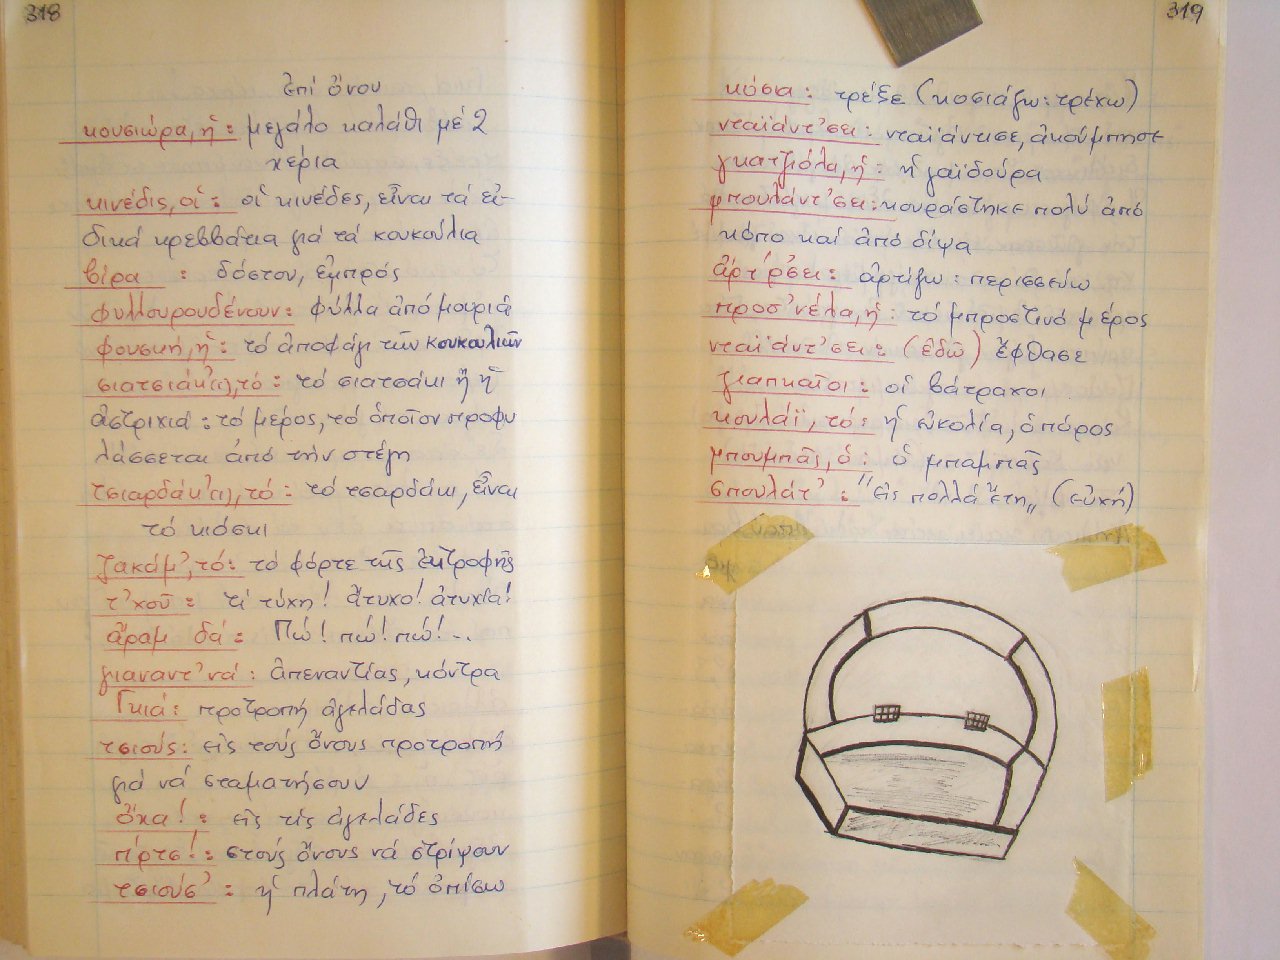 318
ἐπί ὄνου
κουσιώρα, ἡ: μεγάλο καλάθι μέ 2
χέρια
κινέδις, οἱ: οἱ κινέδες, εἶναι τά εἰ-
δικά κρεββάτια γιά τά κουκούλια
βίρα: δόστου, ἐμπρός
φυλλουρουδένουν: φύλλα ἀπό μουριά
φουσκή, ἡ: τό ἀποφάγι τῶν κουκουλιῶν
σιατσιάκ'(ι), τό: τό σιατσάκι ἤ ἡ
ἀστριχιά: τό μέρος, τό ὁποῖον προφυ
λάσσεται ἀπό τήν στέγη
τσιαρδάκ'(ι), τό: τό τσαρδάκι, εἶναι
τό κιόσκι
ζακόμ', τό: τό φόρτε τῆς ἐκτροφῆς
τ'χοῦ: τί τύχη! ἄτυχο! ἀτυχία!
ἄραμ δά: Πώ! πώ! πώ!...
γιαναντ'νά: ἀπεναντίας, κόντρα
Γκιά: προτροπή ἀγελάδας
τσιούς: εἰς τούς ὄνους προτροπή
γιά νά σταματήσουν
ὄχα!: εἰς τίς ἀγελάδες
πίρτς!: στούς ὄνους νά στρίψουν
τσιούσ': ἡ πλάτη, τό ὀπίσω
319
κόσια: τρέξε (κοσιάζω: τρέχω)
νταϊάντ'σει: νταϊάντισε, ἀκούμπησε
γκατζιόλα, ἡ: ἡ γαϊδούρα
μπουλάντ'σει: κουράστηκε πολύ ἀπό
κόπο καί ἀπό δίψα
ἀρτ'ρ'σει: ἀρτίζω: περισσεύω
προσ'νέλα, ἡ: τό μπροστινό μέρος
νταϊάντ'σει: (ἐδῶ) ἔφθασε
γιαπκαῖοι: οἱ βάτραχοι
κουλάϊ, τό: ἡ εὐκολία, ὁ πόρος
μπουμπᾶς, ὁ: ὁ μπαμπᾶς
σπουλάτ': "εἰς πολλά ἔτη" (εὐχή)